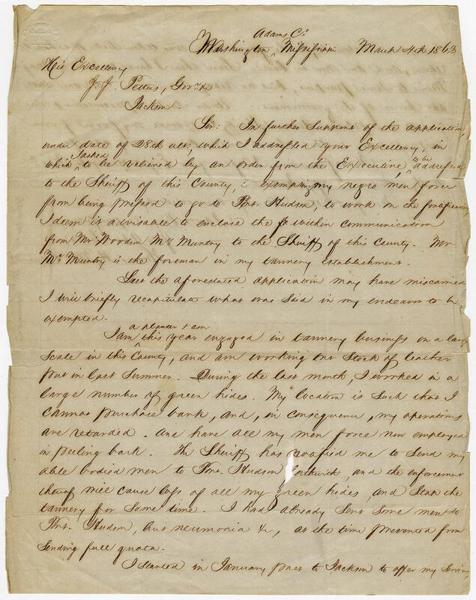 Adams Co
Washington, Mississippi March 4th 1863
His Excellency
J. J. Pettus, Govr &
Jackson
Sir: In further support of the application
under date of 28th ult, which I addressed your Excellency, in
which I asked to be relieved by an order from the Executive, to be addressed
to the Sheriff of this County, exempting my negro men force
from being pressed to go to Port Hudson, to work on the fortifications
I deem it advisable to enclose the within communication
from Mr Wooden McMurtry to the Sheriff of this County. Mr
McMurtry is the foreman in my tannery establishment.
Lest the aforestated application may have miscarried
I will briefly recapitulate what was said in my endeavor to be
exempted.
a planter I am
I am this year engaged in tannery business on a large
scale in this County, and am working our stock of leather
put in last Summer. During the last month, I worked in a
large number of green hides. My location is such that I
cannot purchase bark, and, in consequence, my operations
are retarded. And have all my men force now employed
in peeling bark. The Sheriff has notified me to send my
able bodied men to Port Hudson forthwith, and the enforcement
thereof will cause loss of all my green hides, and stop the
tannery for some time. I had already sent some men to
Port Hudson, but neumonia &c, at the time prevented from
sending full quota.
I started in January past to Jackson to offer my